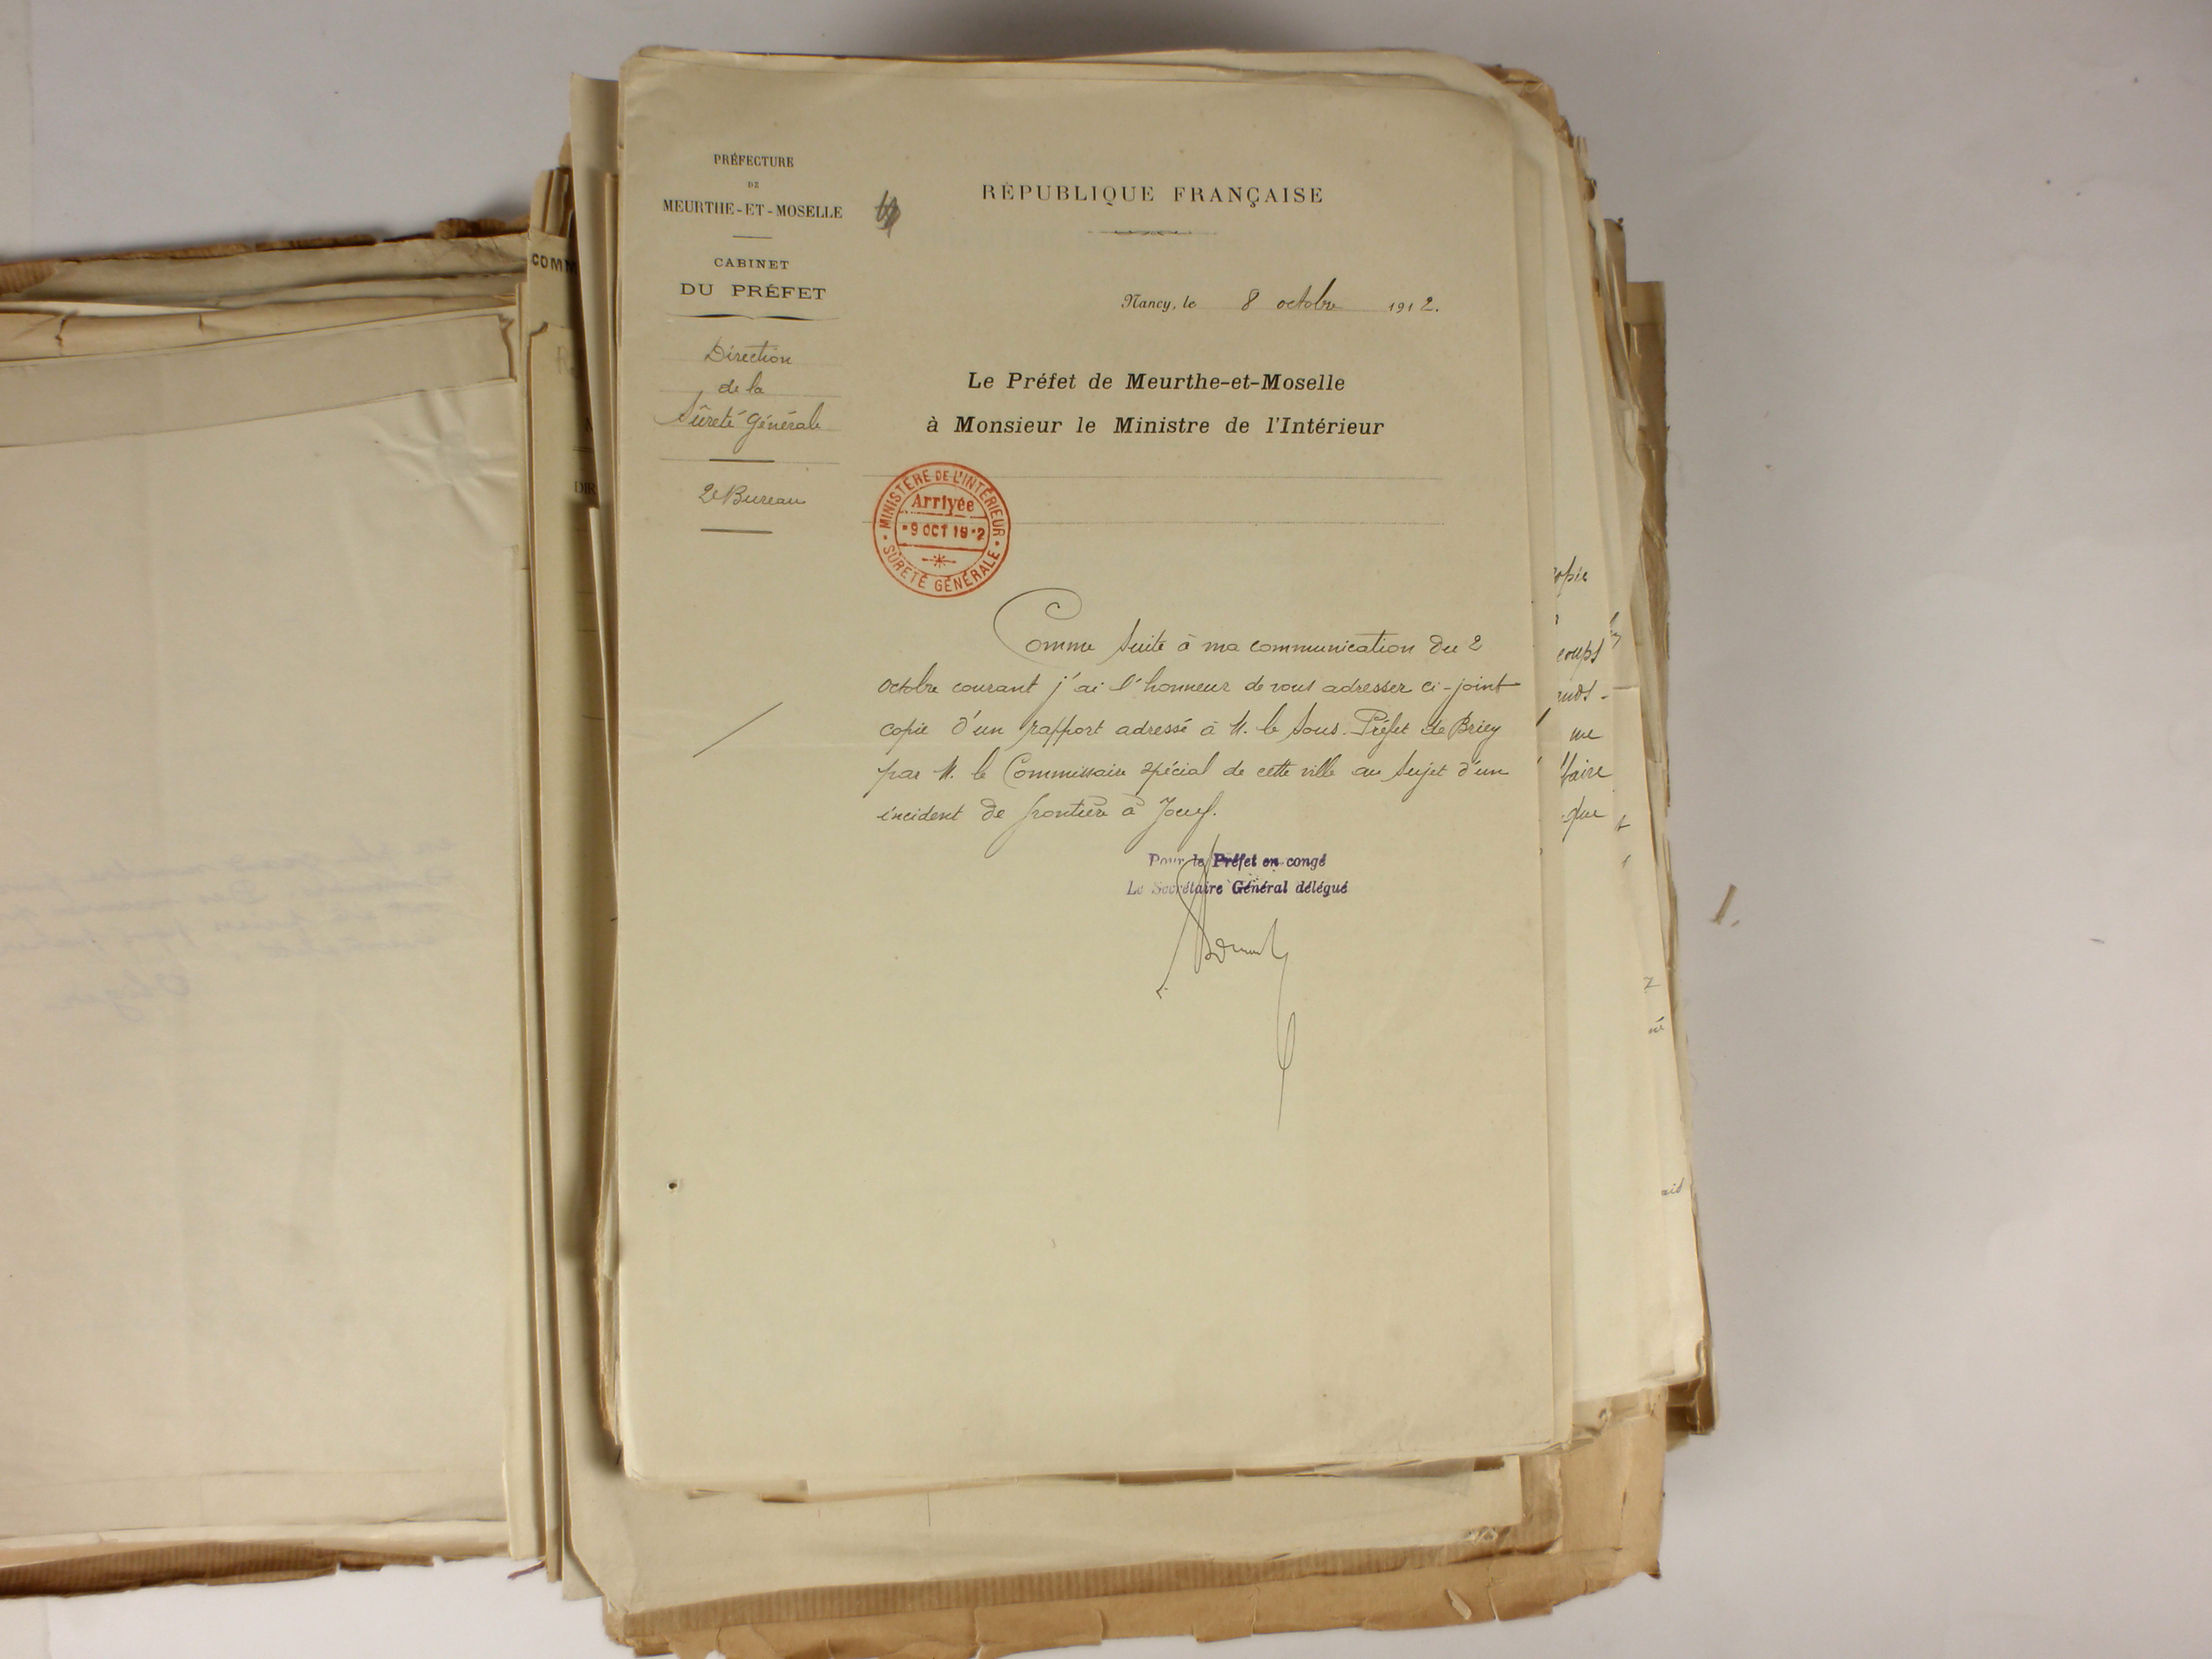 PRÉFECTURE
DE
MEURTHE-ET-MOSELLE
CABINET
DU PRÉFET
Direction
de la
Sûreté Générale
2e Bureau
RÉPUBLIQUE FRANÇAISE
Nancy, le 8 octobre 1912.
Le Préfet de Meurthe-et-Moselle
à Monsieur le Ministre de l'Intérieur
MINISTÈRE DE L'INTÉRIEUR
Arrivée
9 OCT 19 2
SÛRETÉ GÉNÉRALE
Comme suite à ma communication du 2
octobre courant j'ai l'honneur de vous adresser ci-joint
copie d'un rapport adressé à M. le Sous-Préfet de Briey
par M. le Commissaire spécial de cette ville au sujet d'un
incident de frontière à Joeuf.
Pour le Préfet en congé
Le Secrétaire Général délégué
COMM
DIR
opie
coups
me
faire
que